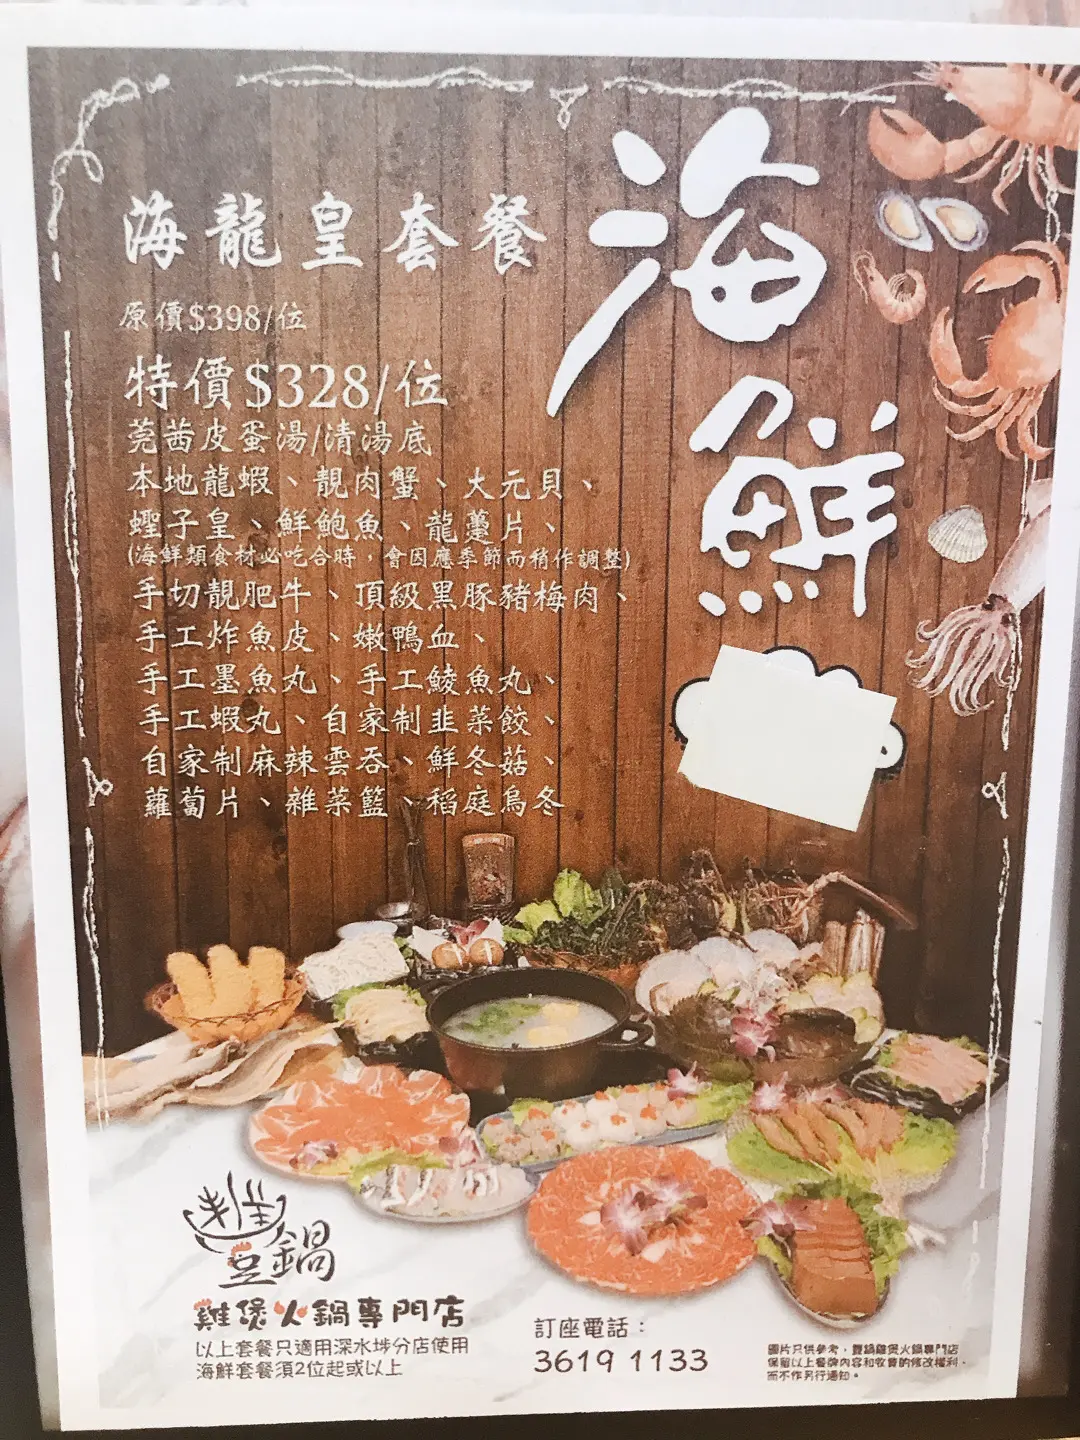 海鮮
海龍皇套餐
原價$398/位
特價$328/位
莞茜皮蛋湯/清湯底
本地龍蝦、靚肉蟹、大元貝、
蟶子皇、鮮鮑魚、龍躉片、
(海鮮類食材必吃合時，會因應季節而稍作調整)
手切靚肥牛、頂級黑豚豬梅肉、
手工炸魚皮、嫩鴨血、
手工墨魚丸、手工鯪魚丸、
手工蝦丸、自家制韭菜餃、
自家制麻辣雲吞、鮮冬菇、
蘿蔔片、雜菜籃、稻庭烏冬
豐鍋
雞煲火鍋專門店
以上套餐只適用深水埗分店使用
海鮮套餐須2位起或以上
訂座電話：
3619 1133
圖片只供參考，豐鍋雞煲火鍋專門店
保留以上餐牌內容和收費的修改權利，
而不作另行通知。